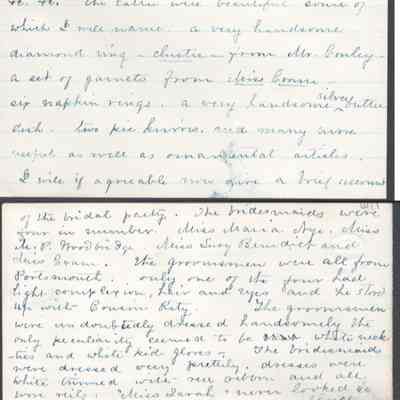 &c. &c. The latter were beautiful some of
which I will name. a very handsome
diamond ring - cluster - from Mr. Conley -
a set of garnets from Miss Evans
six napkin rings. a very handsome silver butter
dish. two pie knives. and many more
useful as well as ornamental articles.
I will if agreeable now give a brief account
of the bridal party. The bridesmaids were
four in number. Miss Maria Nye. Miss
M. P. Woodbridge Miss Lucy Benedict and
Miss Evans. The groomsmen were all from
Portsmouth. only one of the four had
light complexion, hair and eyes and he stood
up with Cousin Katy. The groomsmen
were undoubtedly dressed handsomely the
only peculiarity seemed to be white neck
-ties and white kid gloves - The bridesmaids
were dressed very prettily. dresses were
white trimmed with ribbon and all
wore veils. Miss Sarah never looked so